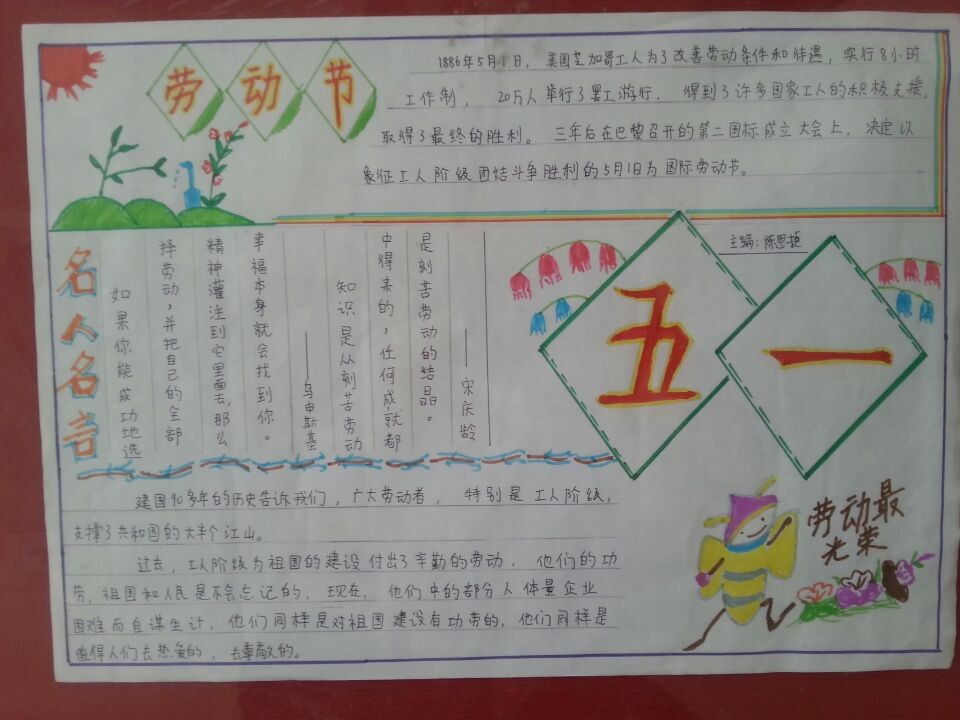 劳动节
1886年5月1日，美国芝加哥工人为了改善劳动条件和待遇，实行8小时
工作制，20万人举行了罢工游行，得到了许多国家工人的积极支援，
取得了最终的胜利。三年后在巴黎召开的第二国标成立大会上，决定以
象征工人阶级团结斗争胜利的5月1日为国际劳动节。
主编：陈思
五一
名人名言
如果你能成功地选
择劳动，并把自己的全部
精神灌注到它里面去，那么
幸福本身就会找到你。
——乌申斯基
知识是从刻苦劳动
中得来的，任何成就都
是刻苦劳动的结晶。
——宋庆龄
建国90多年的历史告诉我们，广大劳动者，特别是工人阶级，
支撑了共和国的大半个江山。
过去，工人阶级为祖国的建设付出了辛勤的劳动，他们的功
劳，祖国和人民是不会忘记的，现在，他们中的部分人体量企业
困难而自谋生计，他们同样是对祖国建设有功劳的，他们同样是
值得人们去热爱的，去尊敬的。
劳动最
光荣